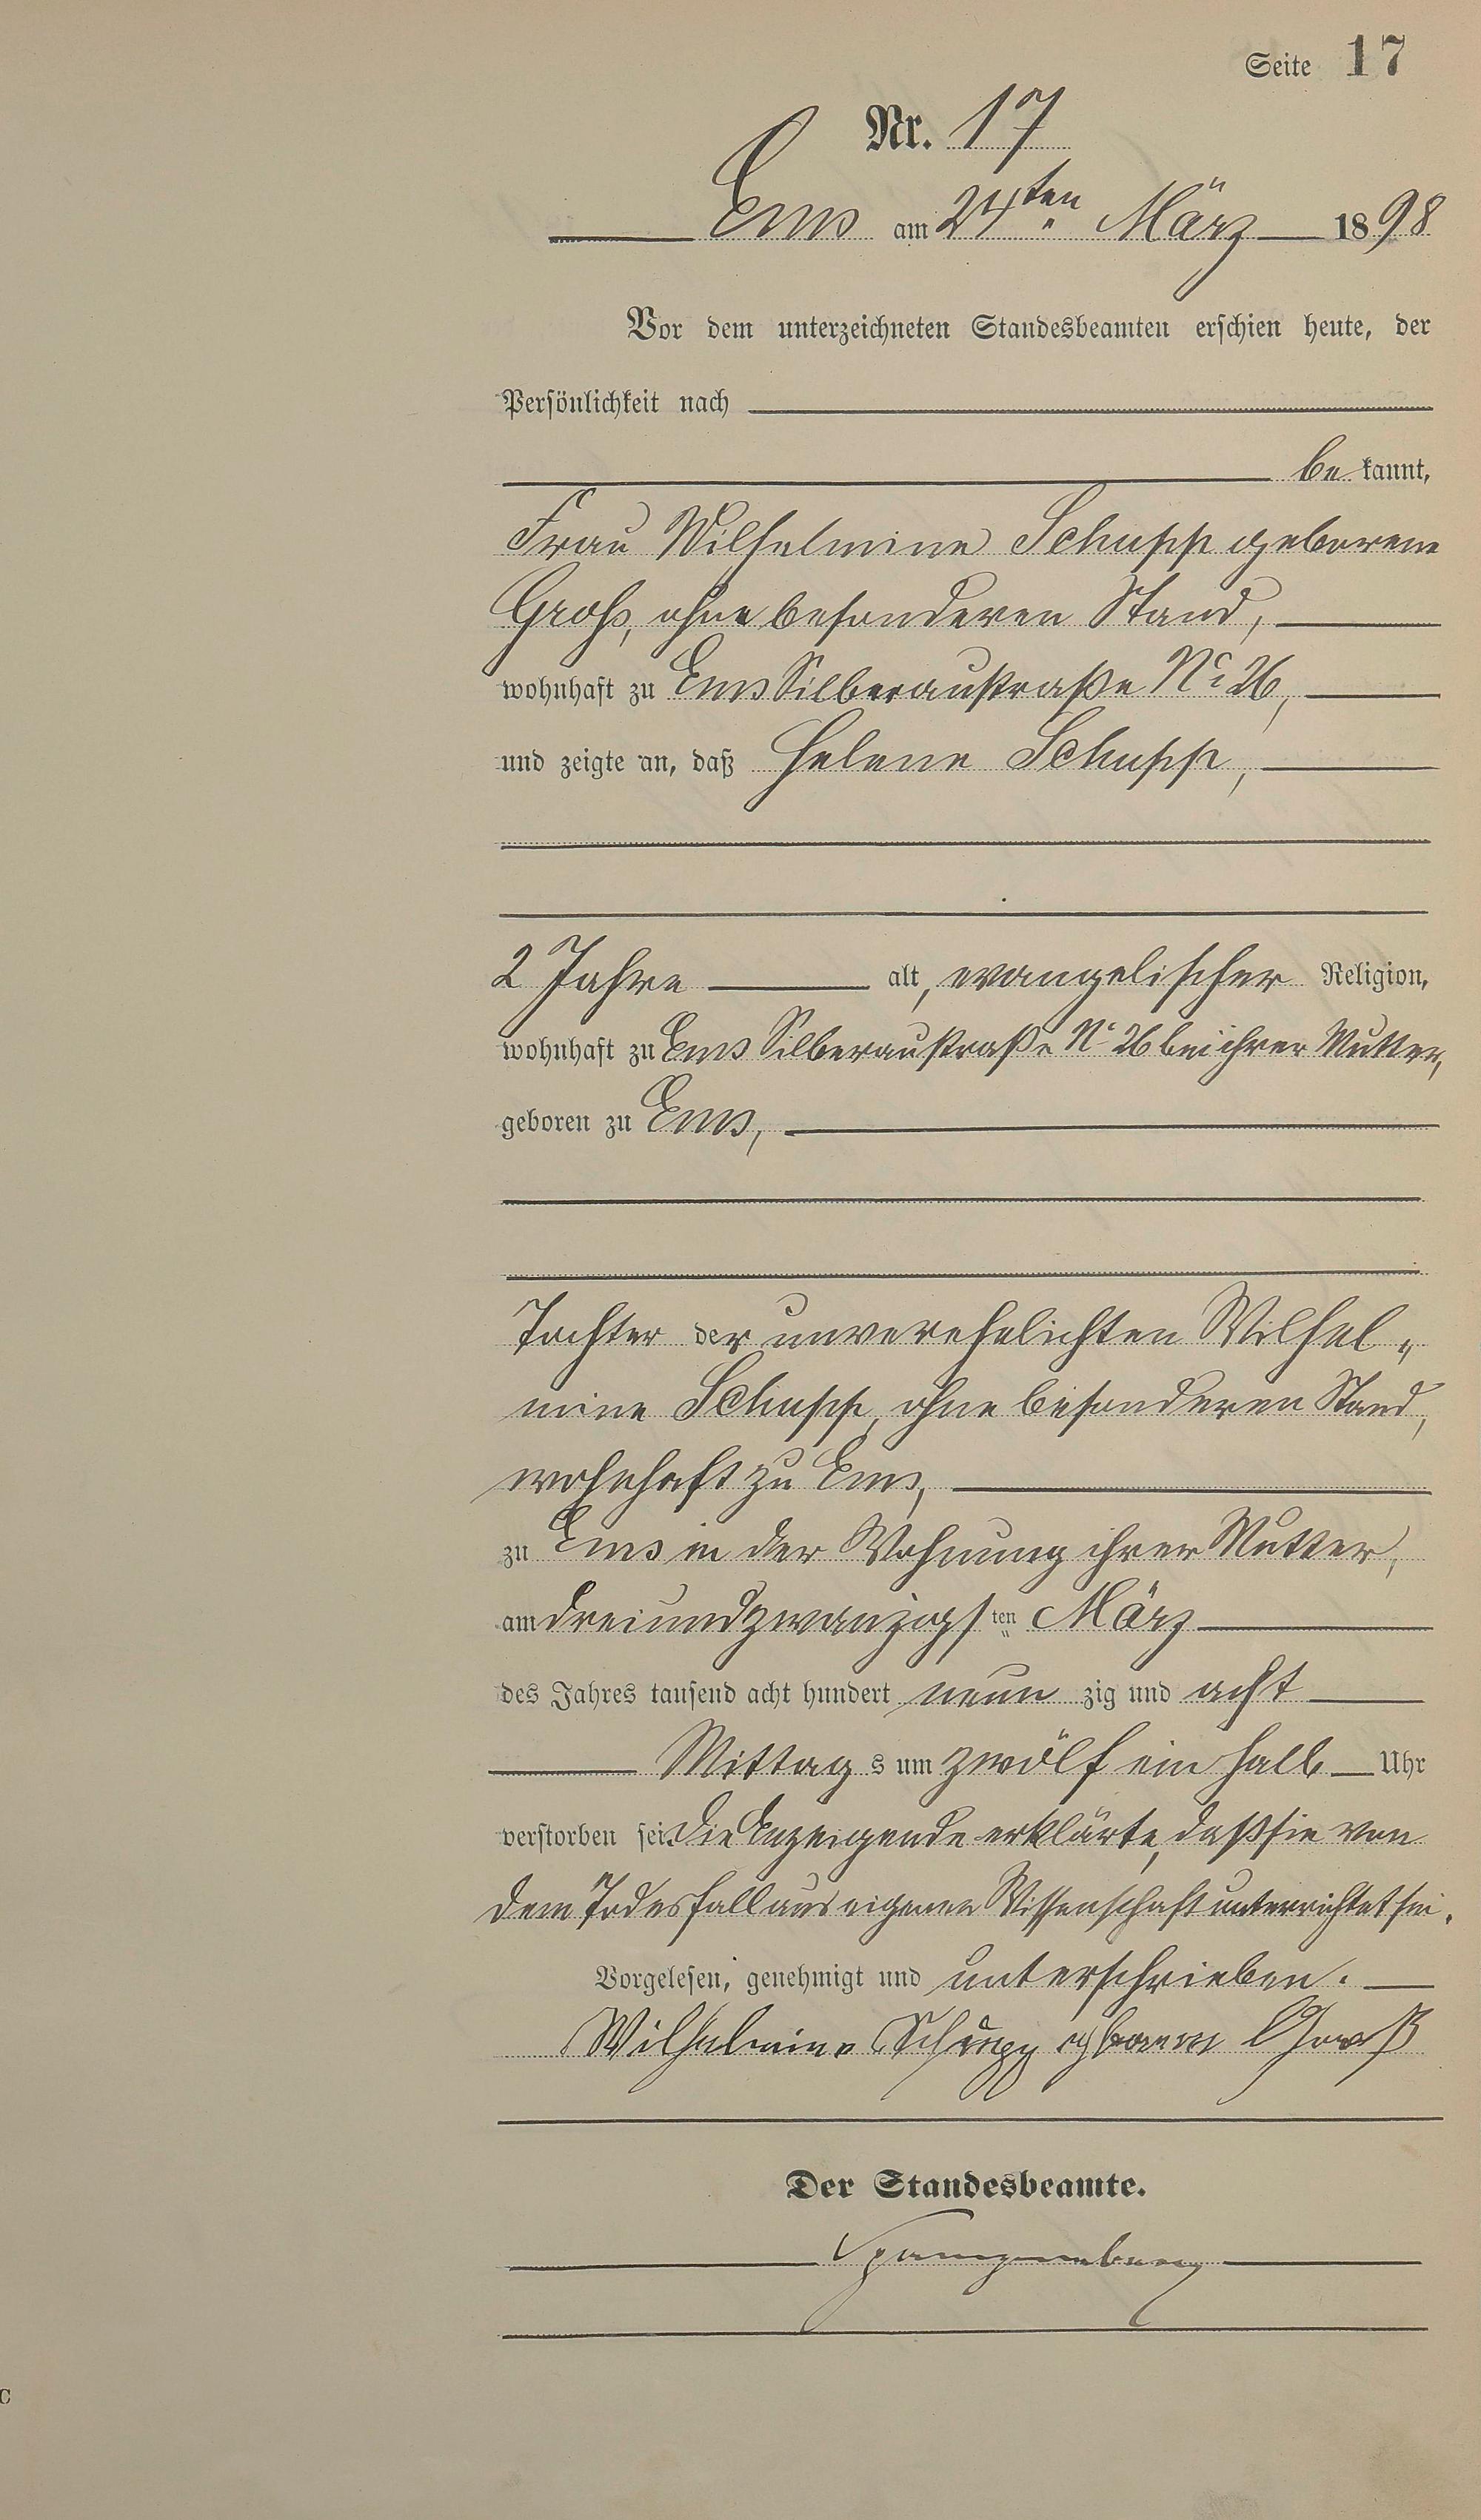 Seite 17
Nr. 17
Ems am 24ten März 1898
Vor dem unterzeichneten Standesbeamten erschien heute, der
Persönlichkeit nach
bekannt,
Frau Wilhelmine Schupp geborene
Groß, ohne besonderen Stand,
wohnhaft zu Ems Silberaustraße No 26,
und zeigte an, daß Helene Schupp,
2 Jahre alt, evangelischer Religion,
wohnhaft zu Ems Silberaustraße No 26 bei ihrer Mutter,
geboren zu Ems,
Tochter der unverehelichten Wilhel„
mine Schupp, ohne besonderen Stand,
wohnhaft zu Ems,
zu Ems in der Wohnung ihrer Mutter,
am dreiundzwanzigsten März
des Jahres tausend acht hundert neunzig und acht
Mittags um zwölf ein halb Uhr
verstorben sei. Die Anzeigende erklärte, daß sie von
dem Todesfall aus eigener Wissenschaft unterrichtet sei.
Vorgelesen, genehmigt und unterschrieben.
Wilhelmine Schupp geborene Groß
Der Standesbeamte.
Spangenberg
C